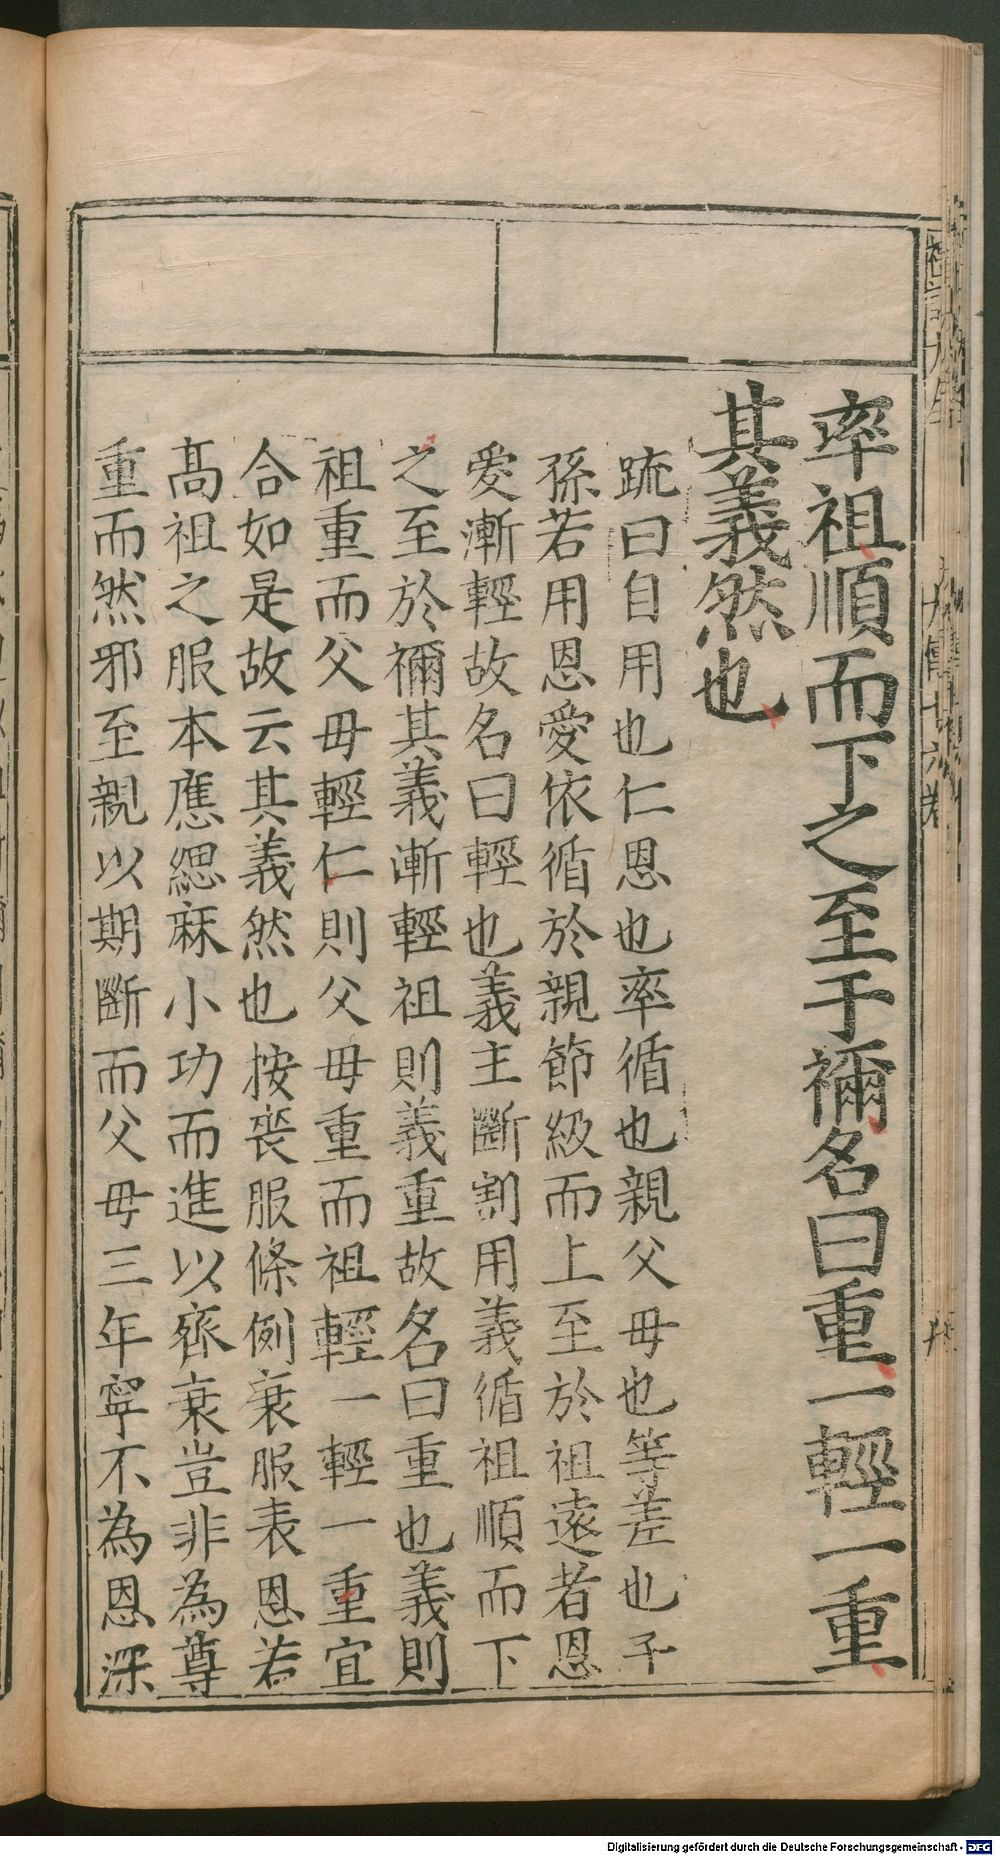 率祖順而下之至于禰名曰重一輕一重
其義然也
疏曰自用也仁恩也率循也親父母也等差也子
孫若用恩愛依循於親節級而上至於祖遠者恩
愛漸輕故名曰輕也義主斷割用義循祖順而下
之至於禰其義漸輕祖則義重故名曰重也義則
祖重而父母輕仁則父母重而祖輕一輕一重宜
合如是故云其義然也按喪服條例衰服表恩若
高祖之服本應緦麻小功而進以齊衰豈非為尊
重而然邪至親以期斷而父母三年寧不為恩深
Digitalisierung gefördert durch die Deutsche Forschungsgemeinschaft - DFG